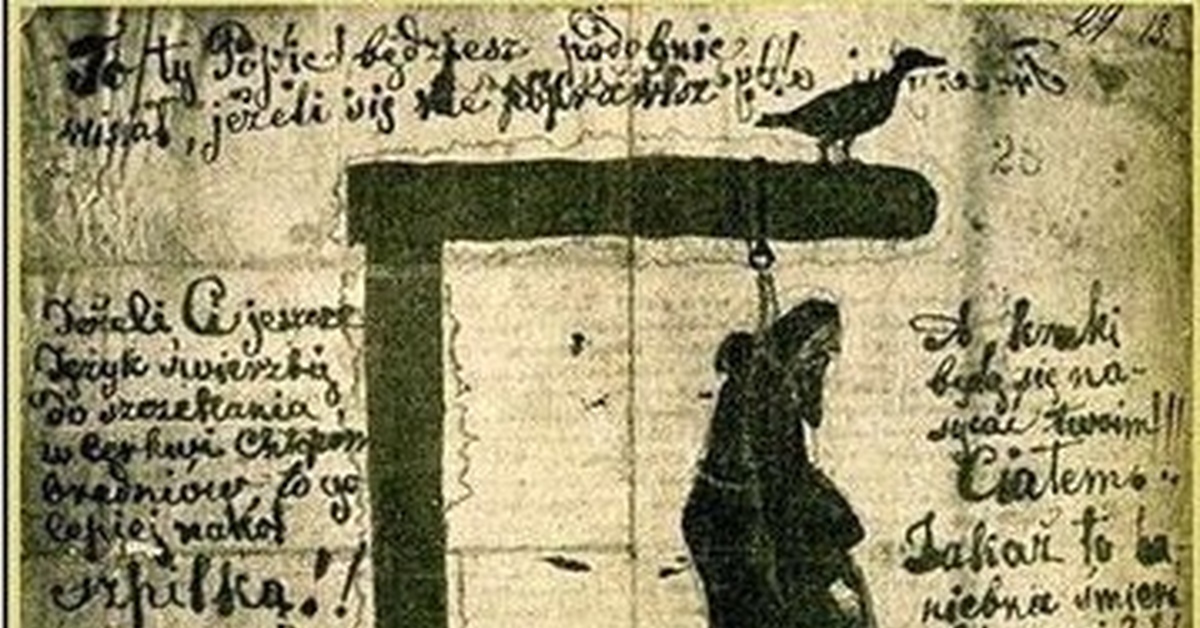 To ty Popie! będziesz podobnie
wisiał, jeżeli się nie poprawisz
29 13.
Jeżeli Ci jeszcze
Język swierzbij
do szczekania
w Cerkwi Chłpom
bredniów, to go
lepiej nakol
szpilką!!
A kruki
będą się na-
sycać twoim!!!
Ciałem..
Jakaż to ha-
niebna śmierć